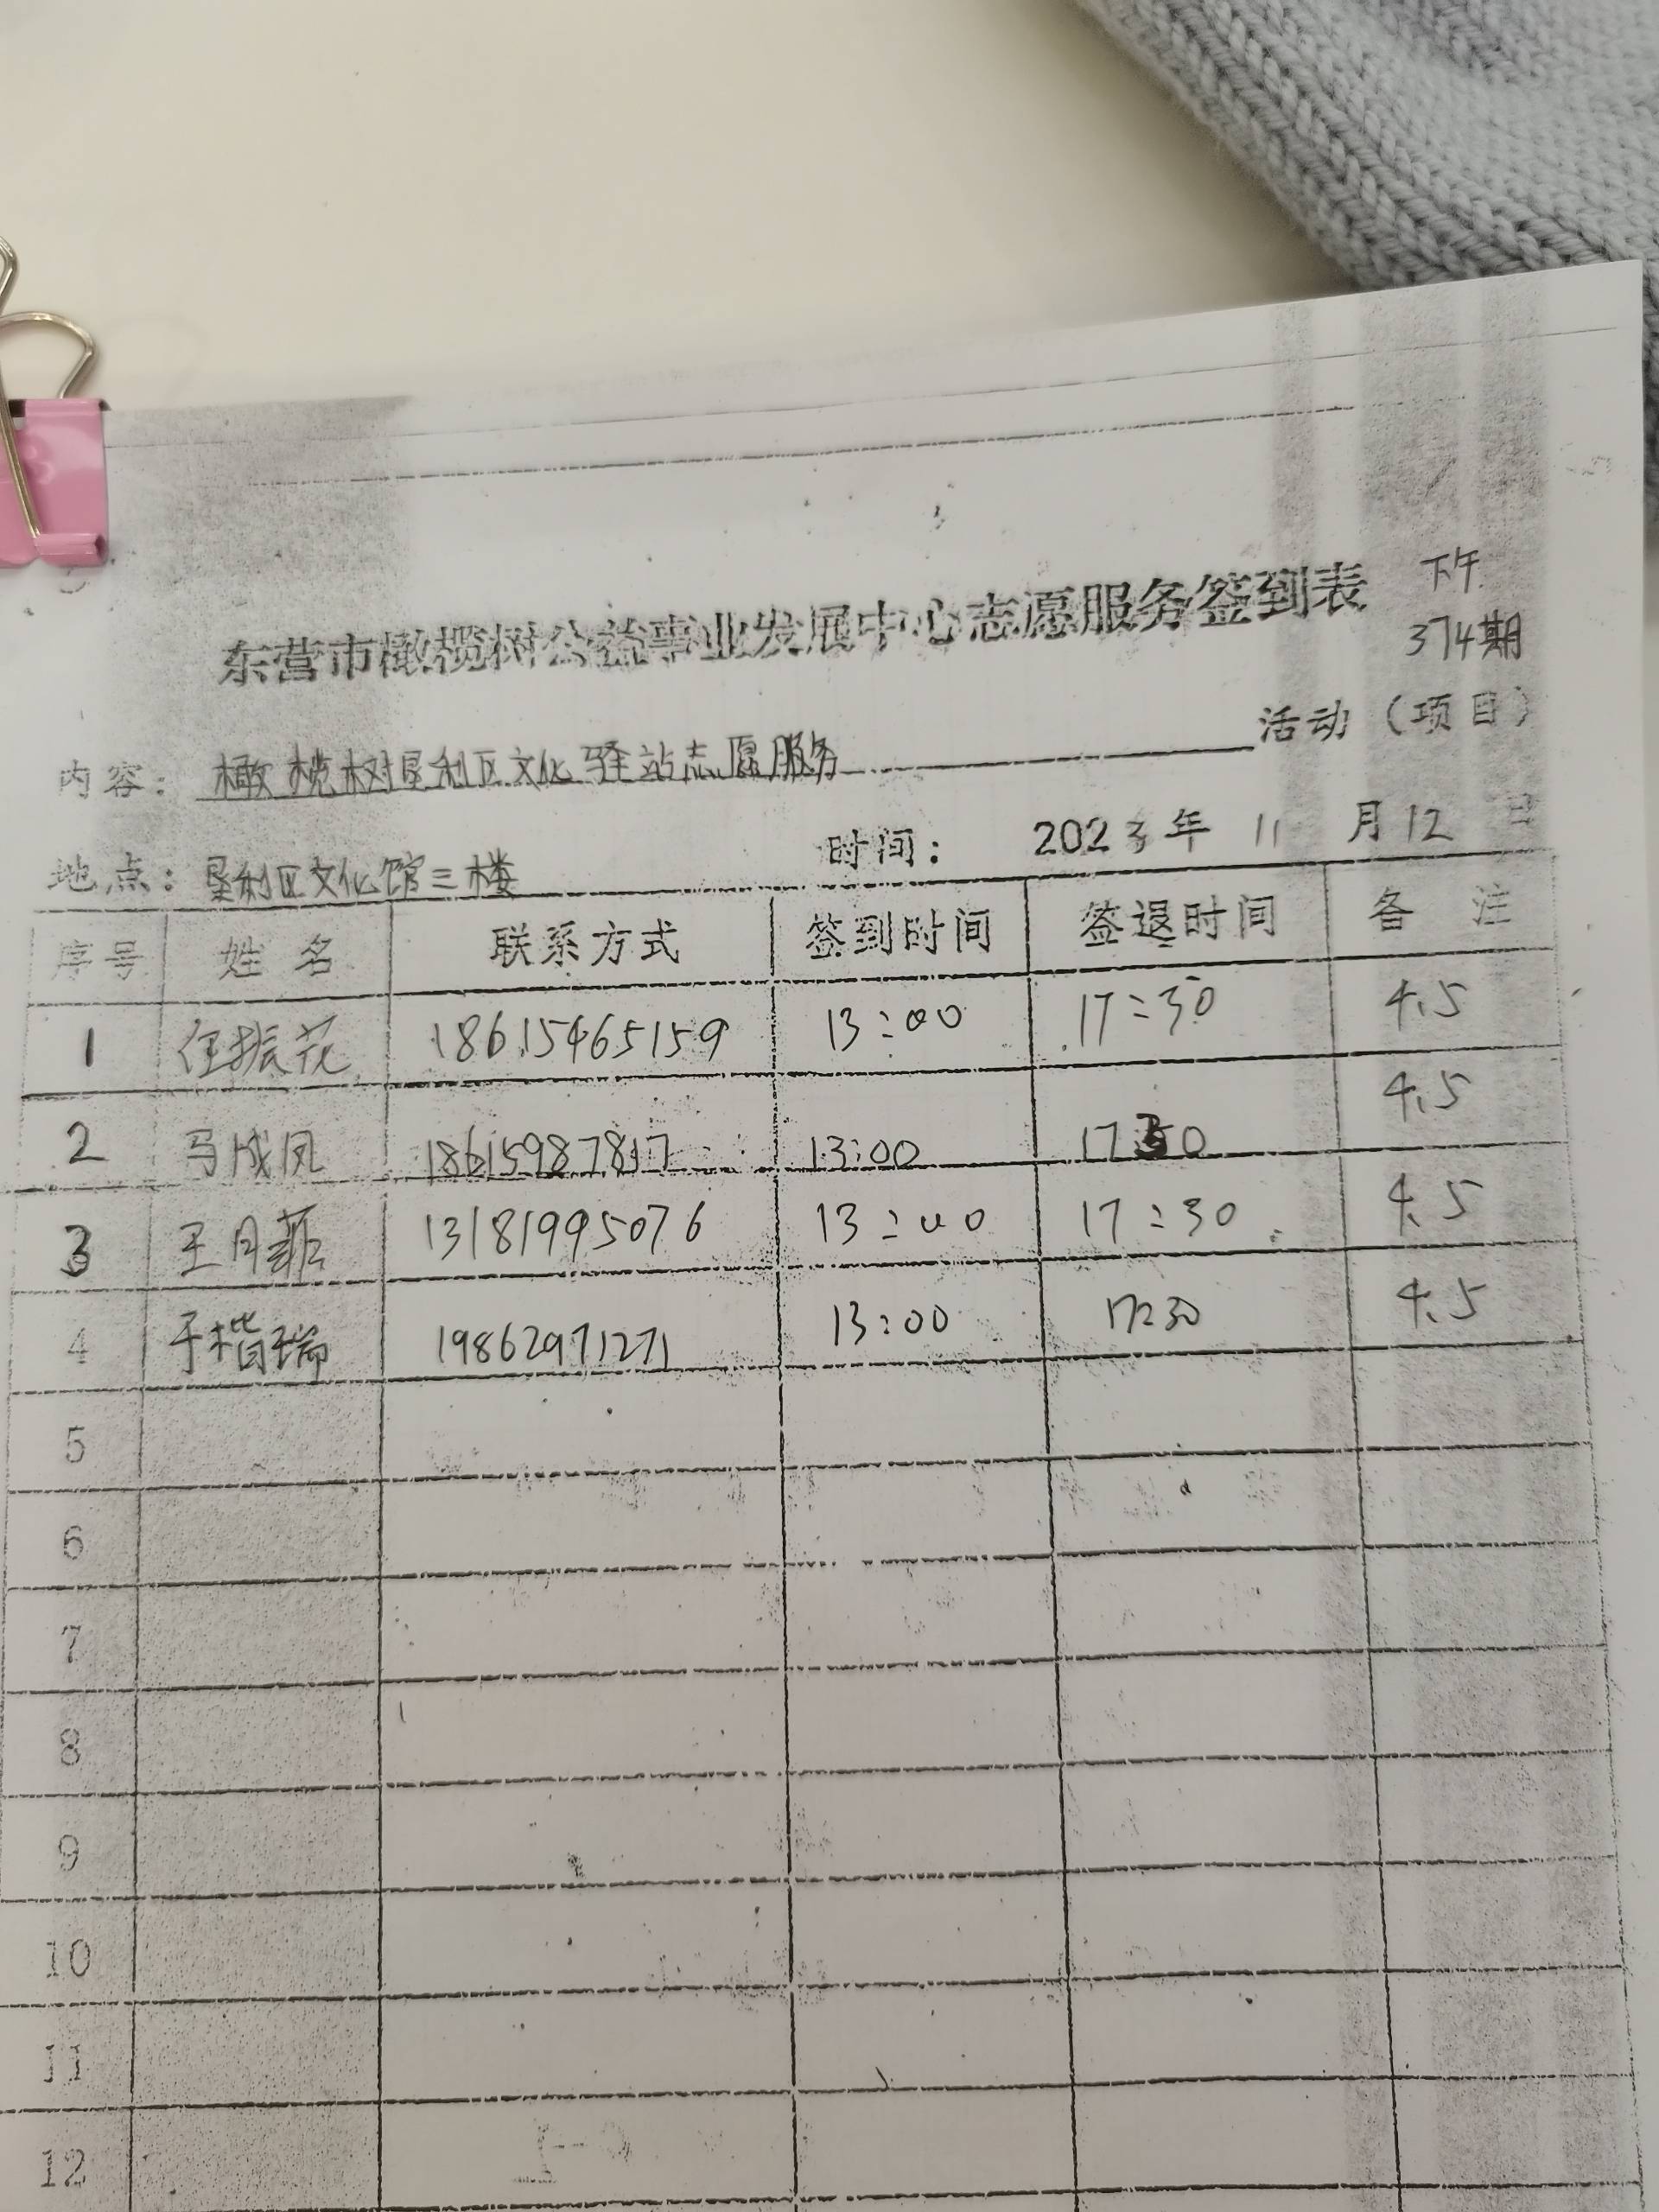 下午
东营市橄榄树公益事业发展中心志愿服务签到表
374期
内容：橄榄树垦利区文化驿站志愿服务 活动（项目）
地点：垦利区文化馆三楼 时间： 2023年 11 月12 日
序号 姓名 联系方式 签到时间 签退时间 备注
1 任振花 18615465159 13:00 17:30 4.5
2 马成凤 18615987817 13:00 1730 4.5
3 王月 13181995076 13:00 17:30 4.5
4 于楷瑞 19862971271 13:00 17:30 4.5
5
6
7
8
9
10
11
12